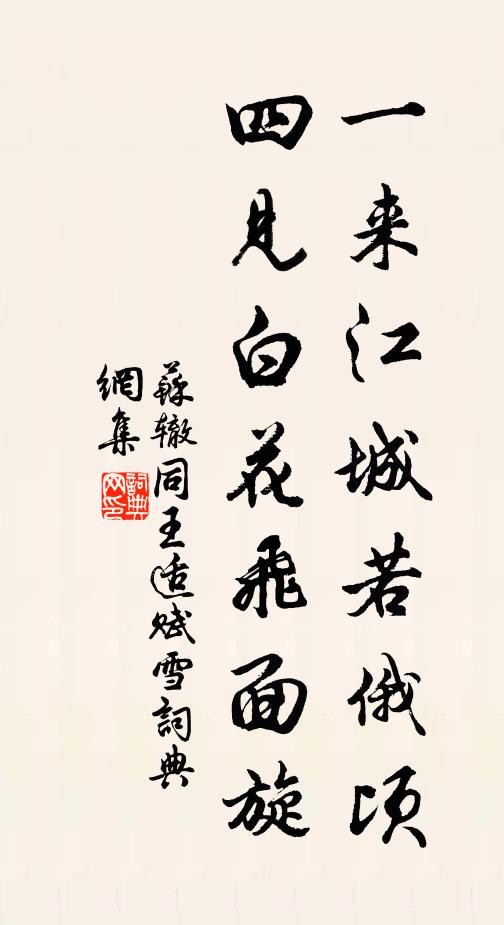 一来江城若俄顷
四见白花飛面旋
蘇辙同王适赋雪詞典
網集
詞典
网印